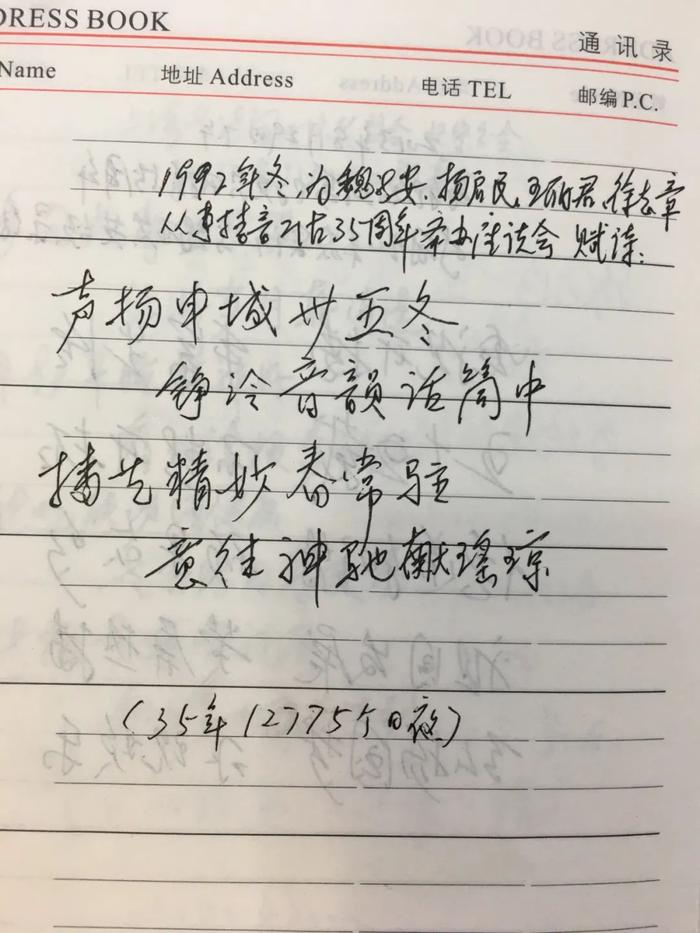 DRESS BOOK
通讯录
Name 地址 Address 电话 TEL 邮编 P.C.
1992年冬,为魏 安、杨启民、王 君、徐志章
从事播音工作35周年举办座谈会 赋诗:
声扬申城卅五冬
铮泠音韻话筒中
播出精妙春常驻
意往神驰献瑶琼
(35年12775个日夜)